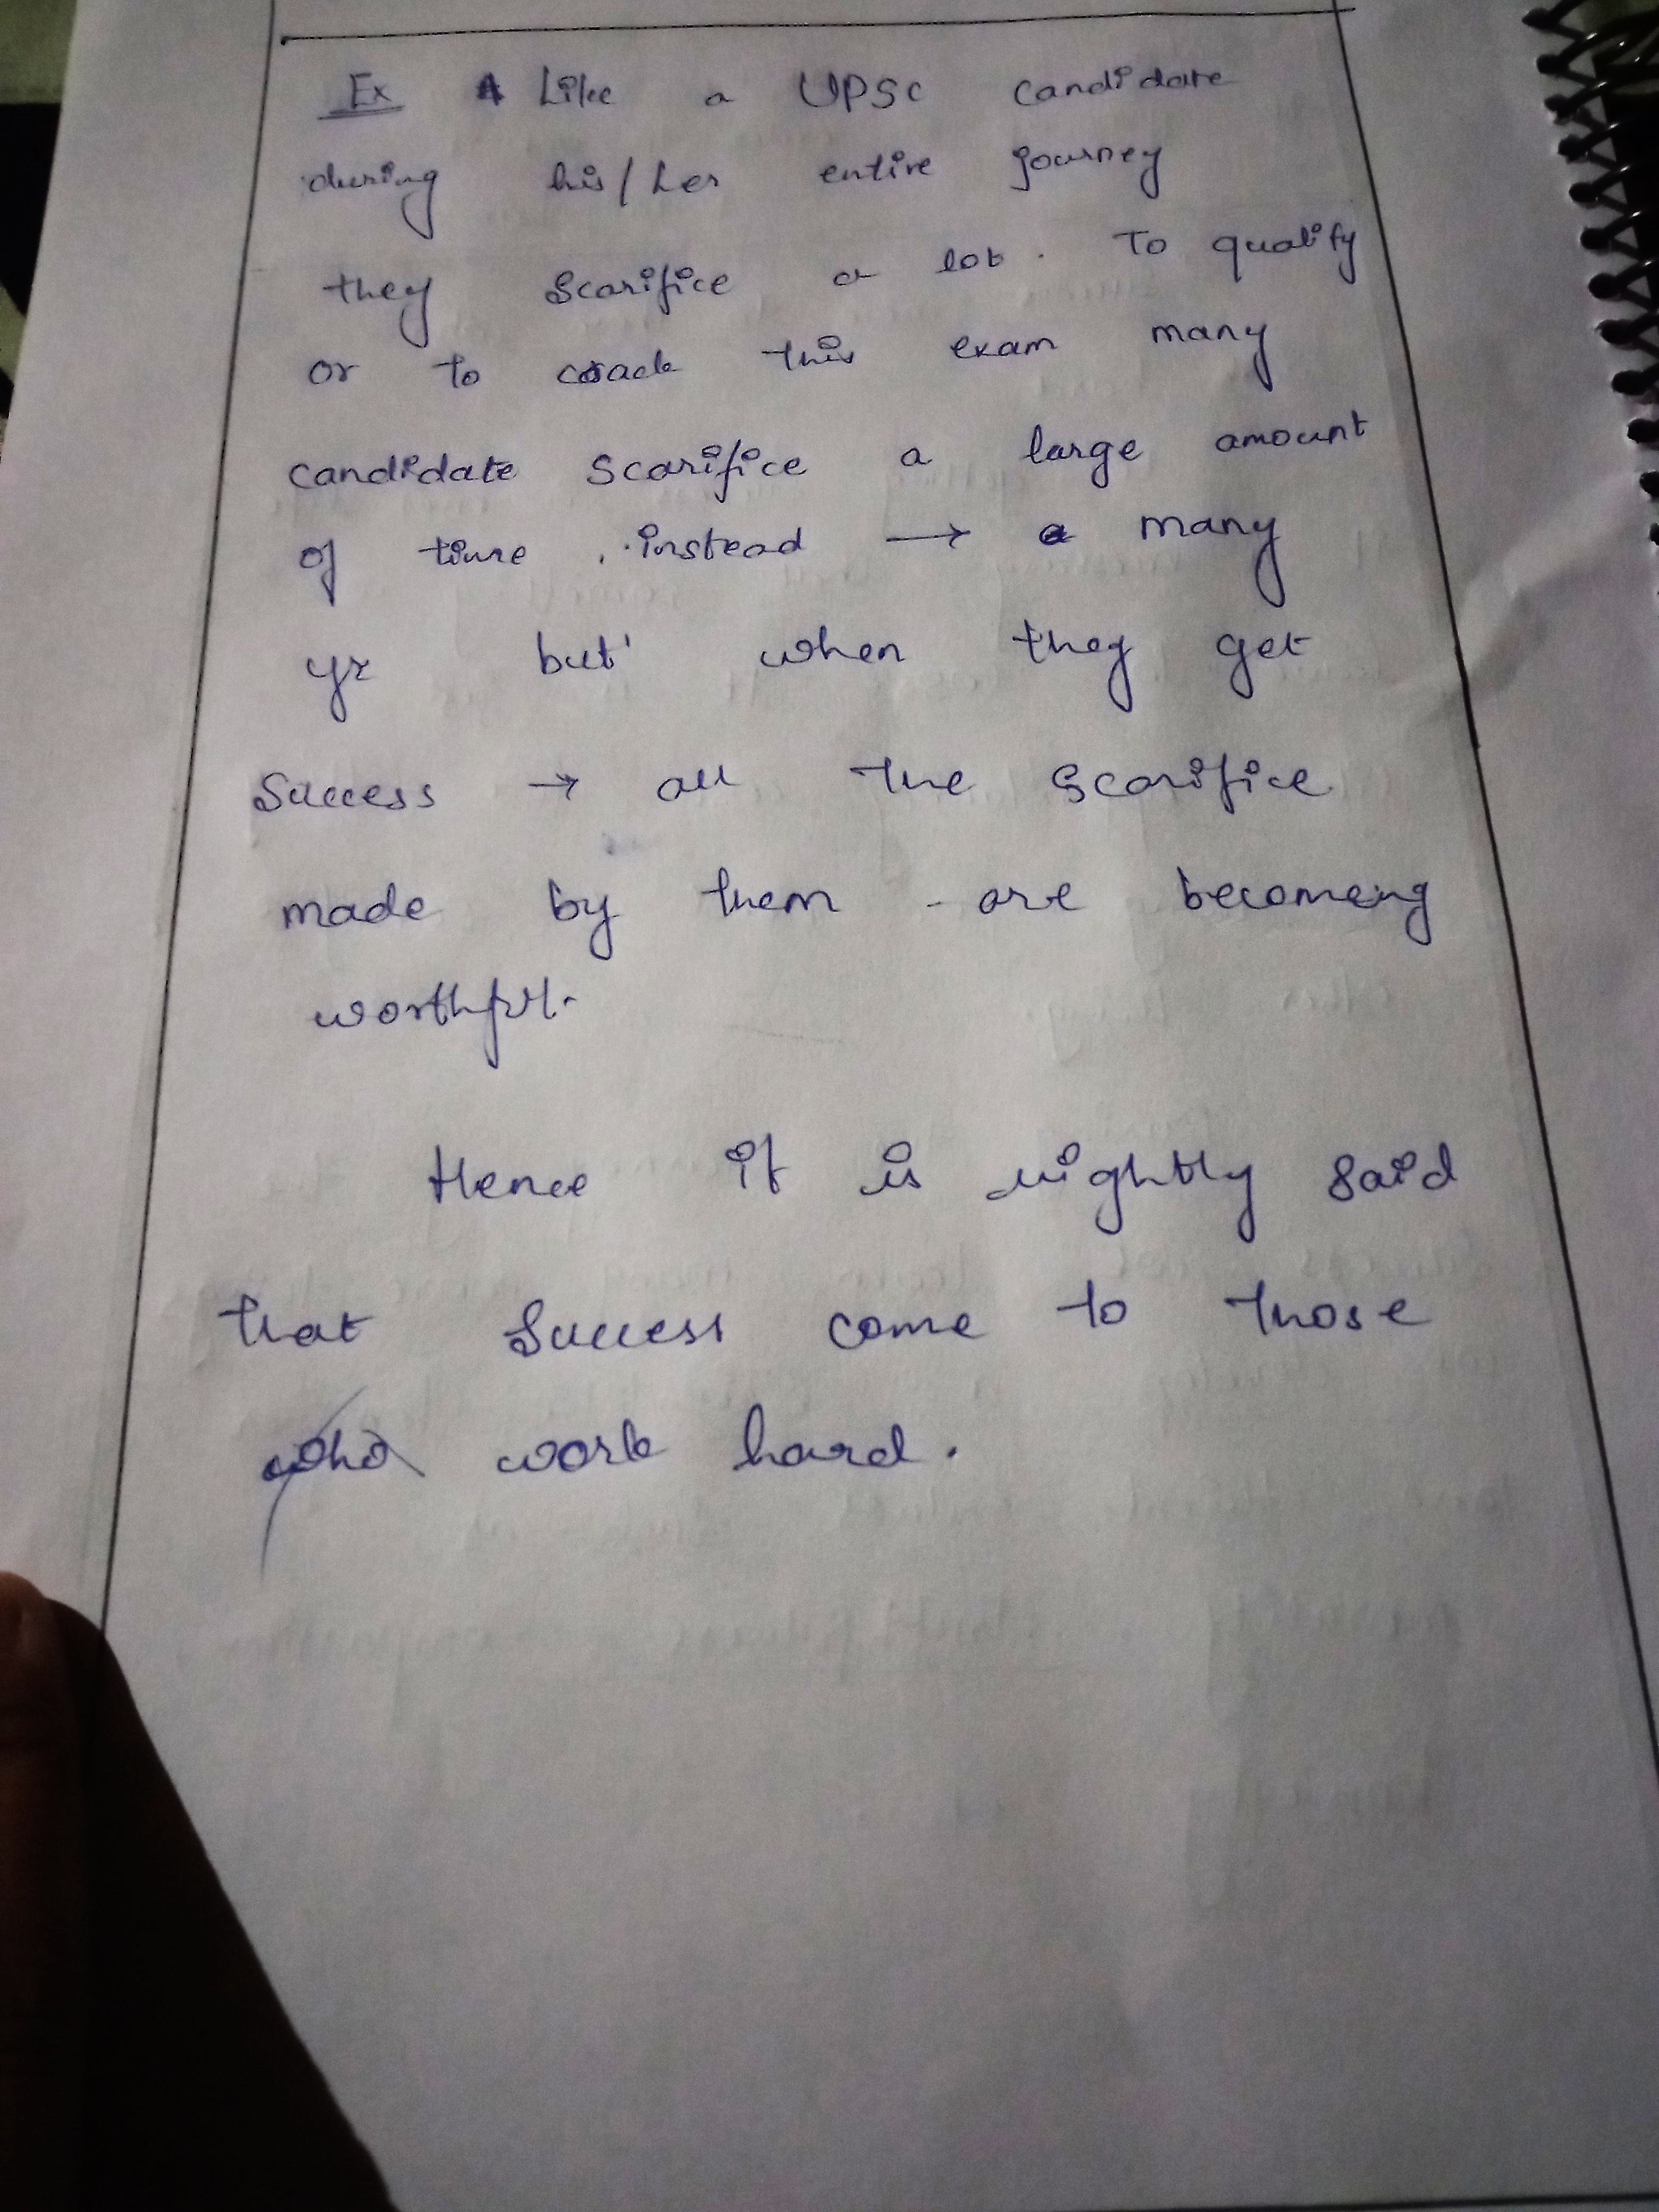 Ex Like a UPSC candidate
during his/her entire journey
they Scarifice a lot. To qualify
or to crack this exam many
candidate Scarifice a large amount
of time, instead → a many
yr but when they get
Success → all the Scarifice
made by them - are becomeing
worthful.
Hence it is rightly said
that Success come to those
who work hard.